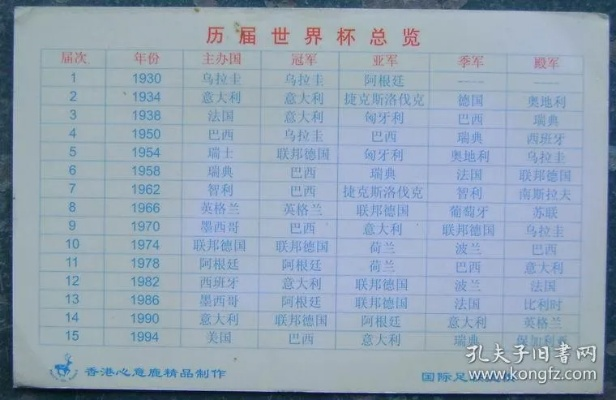 历届世界杯总览
届次 年份 主办国 冠军 亚军 季军 殿军
1 1930 乌拉圭 乌拉圭 阿根廷 ---- ----
2 1934 意大利 意大利 捷克斯洛伐克 德国 奥地利
3 1938 法国 意大利 匈牙利 巴西 瑞典
4 1950 巴西 乌拉圭 巴西 瑞典 西班牙
5 1954 瑞士 联邦德国 匈牙利 奥地利 乌拉圭
6 1958 瑞典 巴西 瑞典 法国 联邦德国
7 1962 智利 巴西 捷克斯洛伐克 智利 南斯拉夫
8 1966 英格兰 英格兰 联邦德国 葡萄牙 苏联
9 1970 墨西哥 巴西 意大利 联邦德国 乌拉圭
10 1974 联邦德国 联邦德国 荷兰 波兰 巴西
11 1978 阿根廷 阿根廷 荷兰 巴西 意大利
12 1982 西班牙 意大利 联邦德国 波兰 法国
13 1986 墨西哥 阿根廷 联邦德国 法国 比利时
14 1990 意大利 联邦德国 阿根廷 意大利 英格兰
15 1994 美国 巴西 意大利 瑞典 保加利亚
香港心意鹿精品制作 国际足
孔夫子旧书网
www.kongfz.com